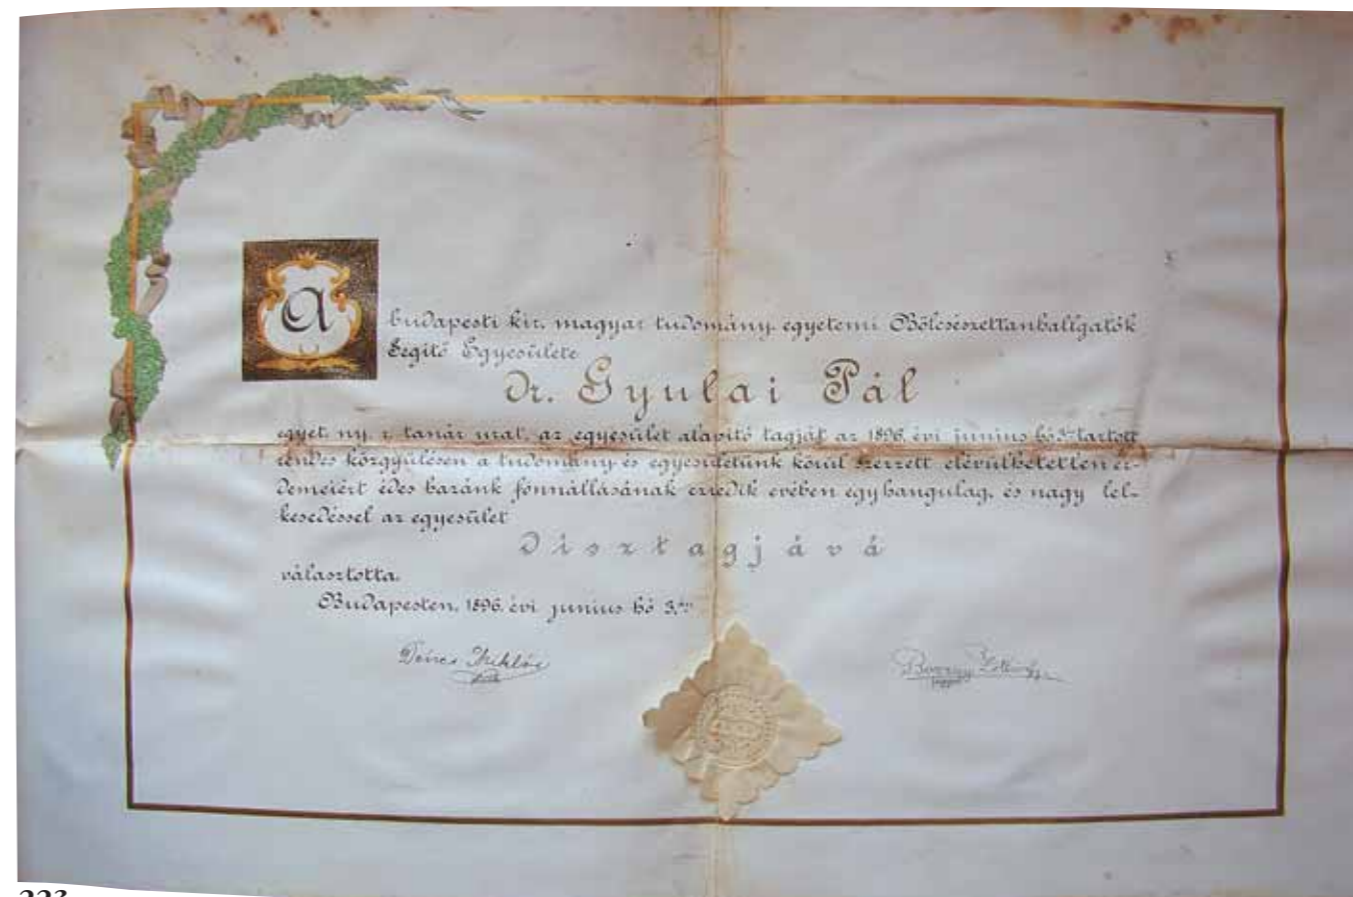 A budapesti kir. magyar tudomány-egyetemi Bölcsészettanhallgatók
Segitő Egyesülete
Dr. Gyulai Pál
egyet. ny. r. tanár urat, az egyesület alapitó tagját az 1896. évi junius hó 3-án tartott
rendes közgyülésen a tudomány és egyesületünk körül szerzett elévülhetetlen ér-
demeiért édes hazánk fönnállásának ezredik evében egyhangulag, és nagy lel-
kesedéssel az egyesület
Disztagjává
választotta.
Budapesten, 1896. évi junius hó 3.án
Miklós
223